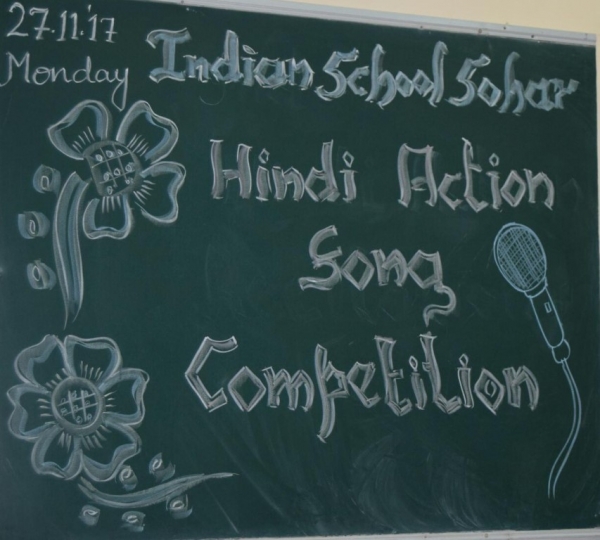 27.11.'17
Monday
Indian School Sohar
Hindi Action
Song
Competition